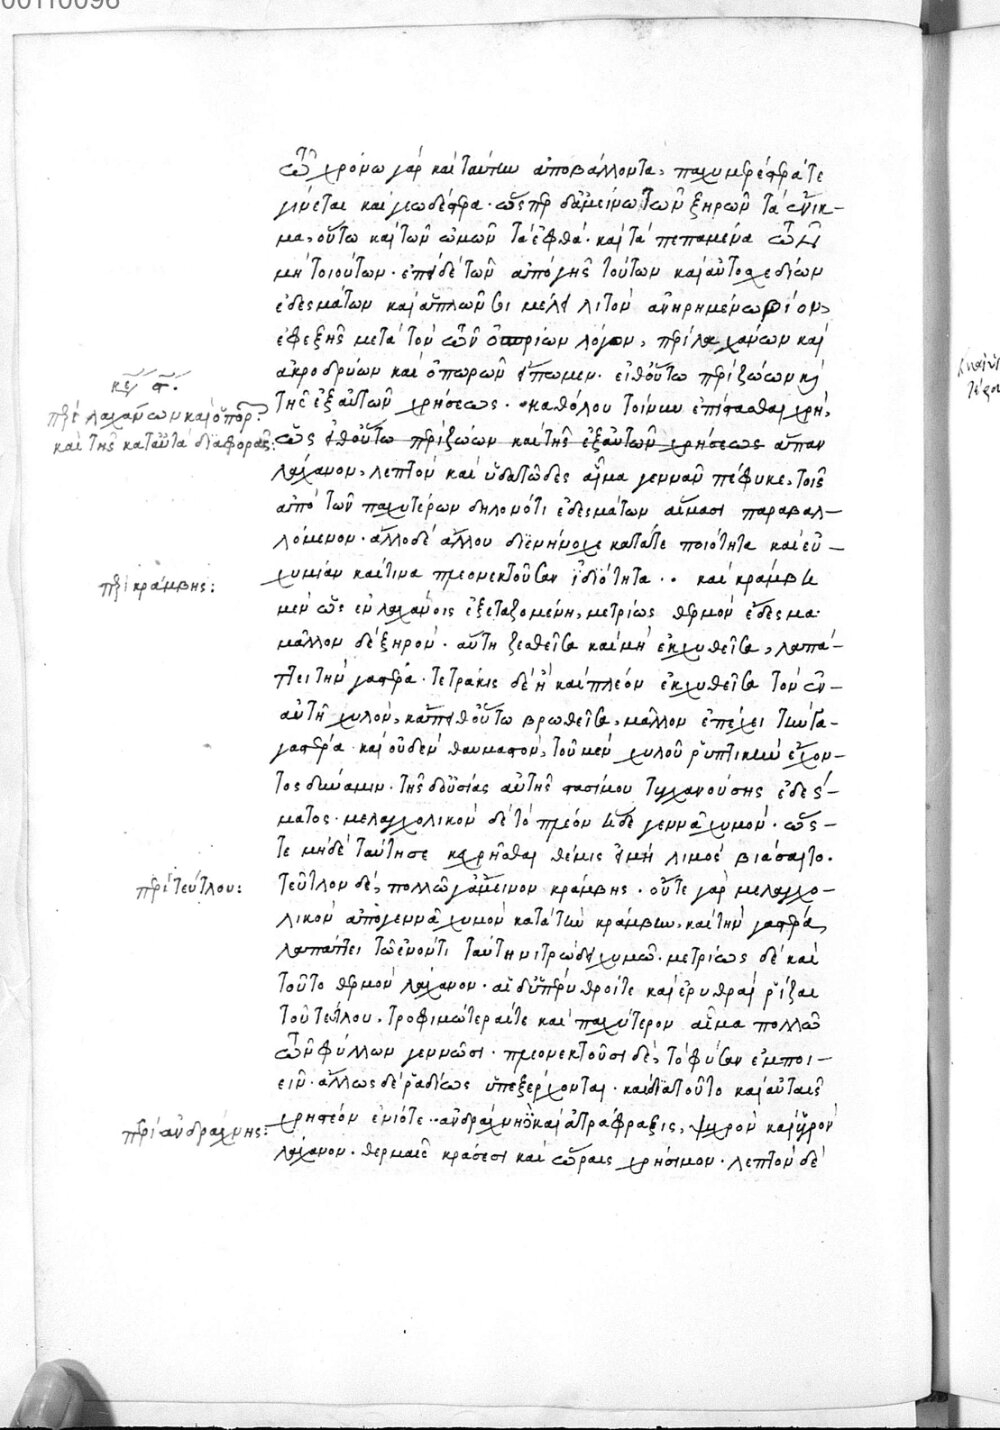 τῷ χρόνῳ γὰρ καὶ ταύτην ἀποβάλλοντα, παχυμερέστερά τε
γίνεται καὶ γεωδέστερα. ὥσπερ δὲ ἀμείνω τῶν ξηρῶν τὰ ἔνικ–
μα, οὕτω καὶ τῶν ὠμῶν τὰ ἑφθά. καὶ τὰ πεπαμένα τῶν
μὴ τοιούτων. ἐπεὶ δὲ τῶν ἀπὸ γῆς τούτων καὶ αὐτοσχεδίων
ἐδεσμάτων καὶ ἁπλῶν οἱ μὲν λιτὸν ἀνῃρημένοι βίον,
ἐφεξῆς μετὰ τὸν τῶν ὀσπρίων λόγον, περὶ λαχάνων καὶ
ἀκροδρύων καὶ ὀπωρῶν εἴπωμεν. εἶθ' οὕτω περὶ ζώων κ
τῆς ἐξ αὐτῶν χρήσεως. καθόλου τοίνυν ἐπίστασθαι χρή,
κε ϛ.
περὶ λαχάνων καὶ ὀπωρ
καὶ τῆς κατ' αὐτὰ διαφορᾶς:
ὡς εἶθ' οὕτω περὶ ζώων καὶ τῆς ἐξ αὐτῶν χρήσεως ἅπαν
λάχανον, λεπτὸν καὶ ὑδατῶδες αἷμα γεννᾶν πέφυκε, τοῖς
ἀπὸ τῶν παχυτέρων δηλονότι ἐδεσμάτων αἵμασι παραβαλ–
λόμενον. ἄλλο δὲ ἄλλου διενήνοχε κατά τε ποιότητα καὶ εὐ–
χυμίαν καί τινα πλεονεκτοῦσαν ἰδιότητα.. καὶ κράμβη
περὶ κράμβης:
μὲν ὡς ἐν λαχάνοις ἐξεταζομένη, μετρίως θερμὸν ἔδεσμα.
μᾶλλον δὲ ξηρόν. αὕτη ζεσθεῖσα καὶ μὴ ἐκχυθεῖσα, λαπά–
πτει τὴν γαστέρα. τετράκις δὲ ἢ καὶ πλέον ἐκχυθεῖσα τὸν ἐν–
αὐτῇ χυλόν, κἄπειθ' οὕτω βρωθεῖσα, μᾶλλον ἐπέχει τὴν γα–
γαστέρα. καὶ οὐδὲν θαυμαστόν, τοῦ μὲν χυλοῦ ῥυπτικὴν ἔχον–
τος δύναμιν. τῆς δ' οὐσίας αὐτῆς στασίμου τυγχανούσης ἐδέσ–
ματος. μελαγχολικὸν δὲ τὸ πλέον ἥδε γεννᾷ χυμόν. ὥς–
τε μηδὲ ταύτης σε κεχρῆσθαι θέμις εἰ μὴ λιμὸς βιάσαιτο.
περὶ τεύτλου:
τεῦτλον δέ, πολλῷ ἄμεινον κράμβης. οὔτε γὰρ μελαγχο–
λικὸν ἀπογεννᾷ χυμὸν κατὰ τὴν κράμβην, καὶ τὴν γαστέρα,
λαπάπτει τῷ ἐνόντι ταύτῃ νιτρώδει χυμῷ. μετρίως δὲ καὶ
τοῦτο θερμὸν λάχανον. αἱ δ' ὑπέρυθροί τε καὶ ἐρυθραὶ ῥίζαι
τοῦ τεύτλου, τροφιμώτεραί τε καὶ παχύτερον αἷμα πολλῷ
τῶν φύλλων γεννῶσι. πλεονεκτοῦσι δέ, τὸ φύσαν ἐμποι–
εῖν. ἄλλως δὲ ῥᾳδίως ὑπεξέρχονται. καὶ διὰ τοῦτο καὶ αὐταῖς
χρηστέον ἐνίοτε. ἀνδράχνη δὲ καὶ ἀτράφραξις, ψυχρὸν καὶ ὑγρὸν
περὶ ἀνδράχνης:
λάχανον. θερμαῖς κράσεσι καὶ ὥραις χρήσιμον. λεπτὸν δὲ